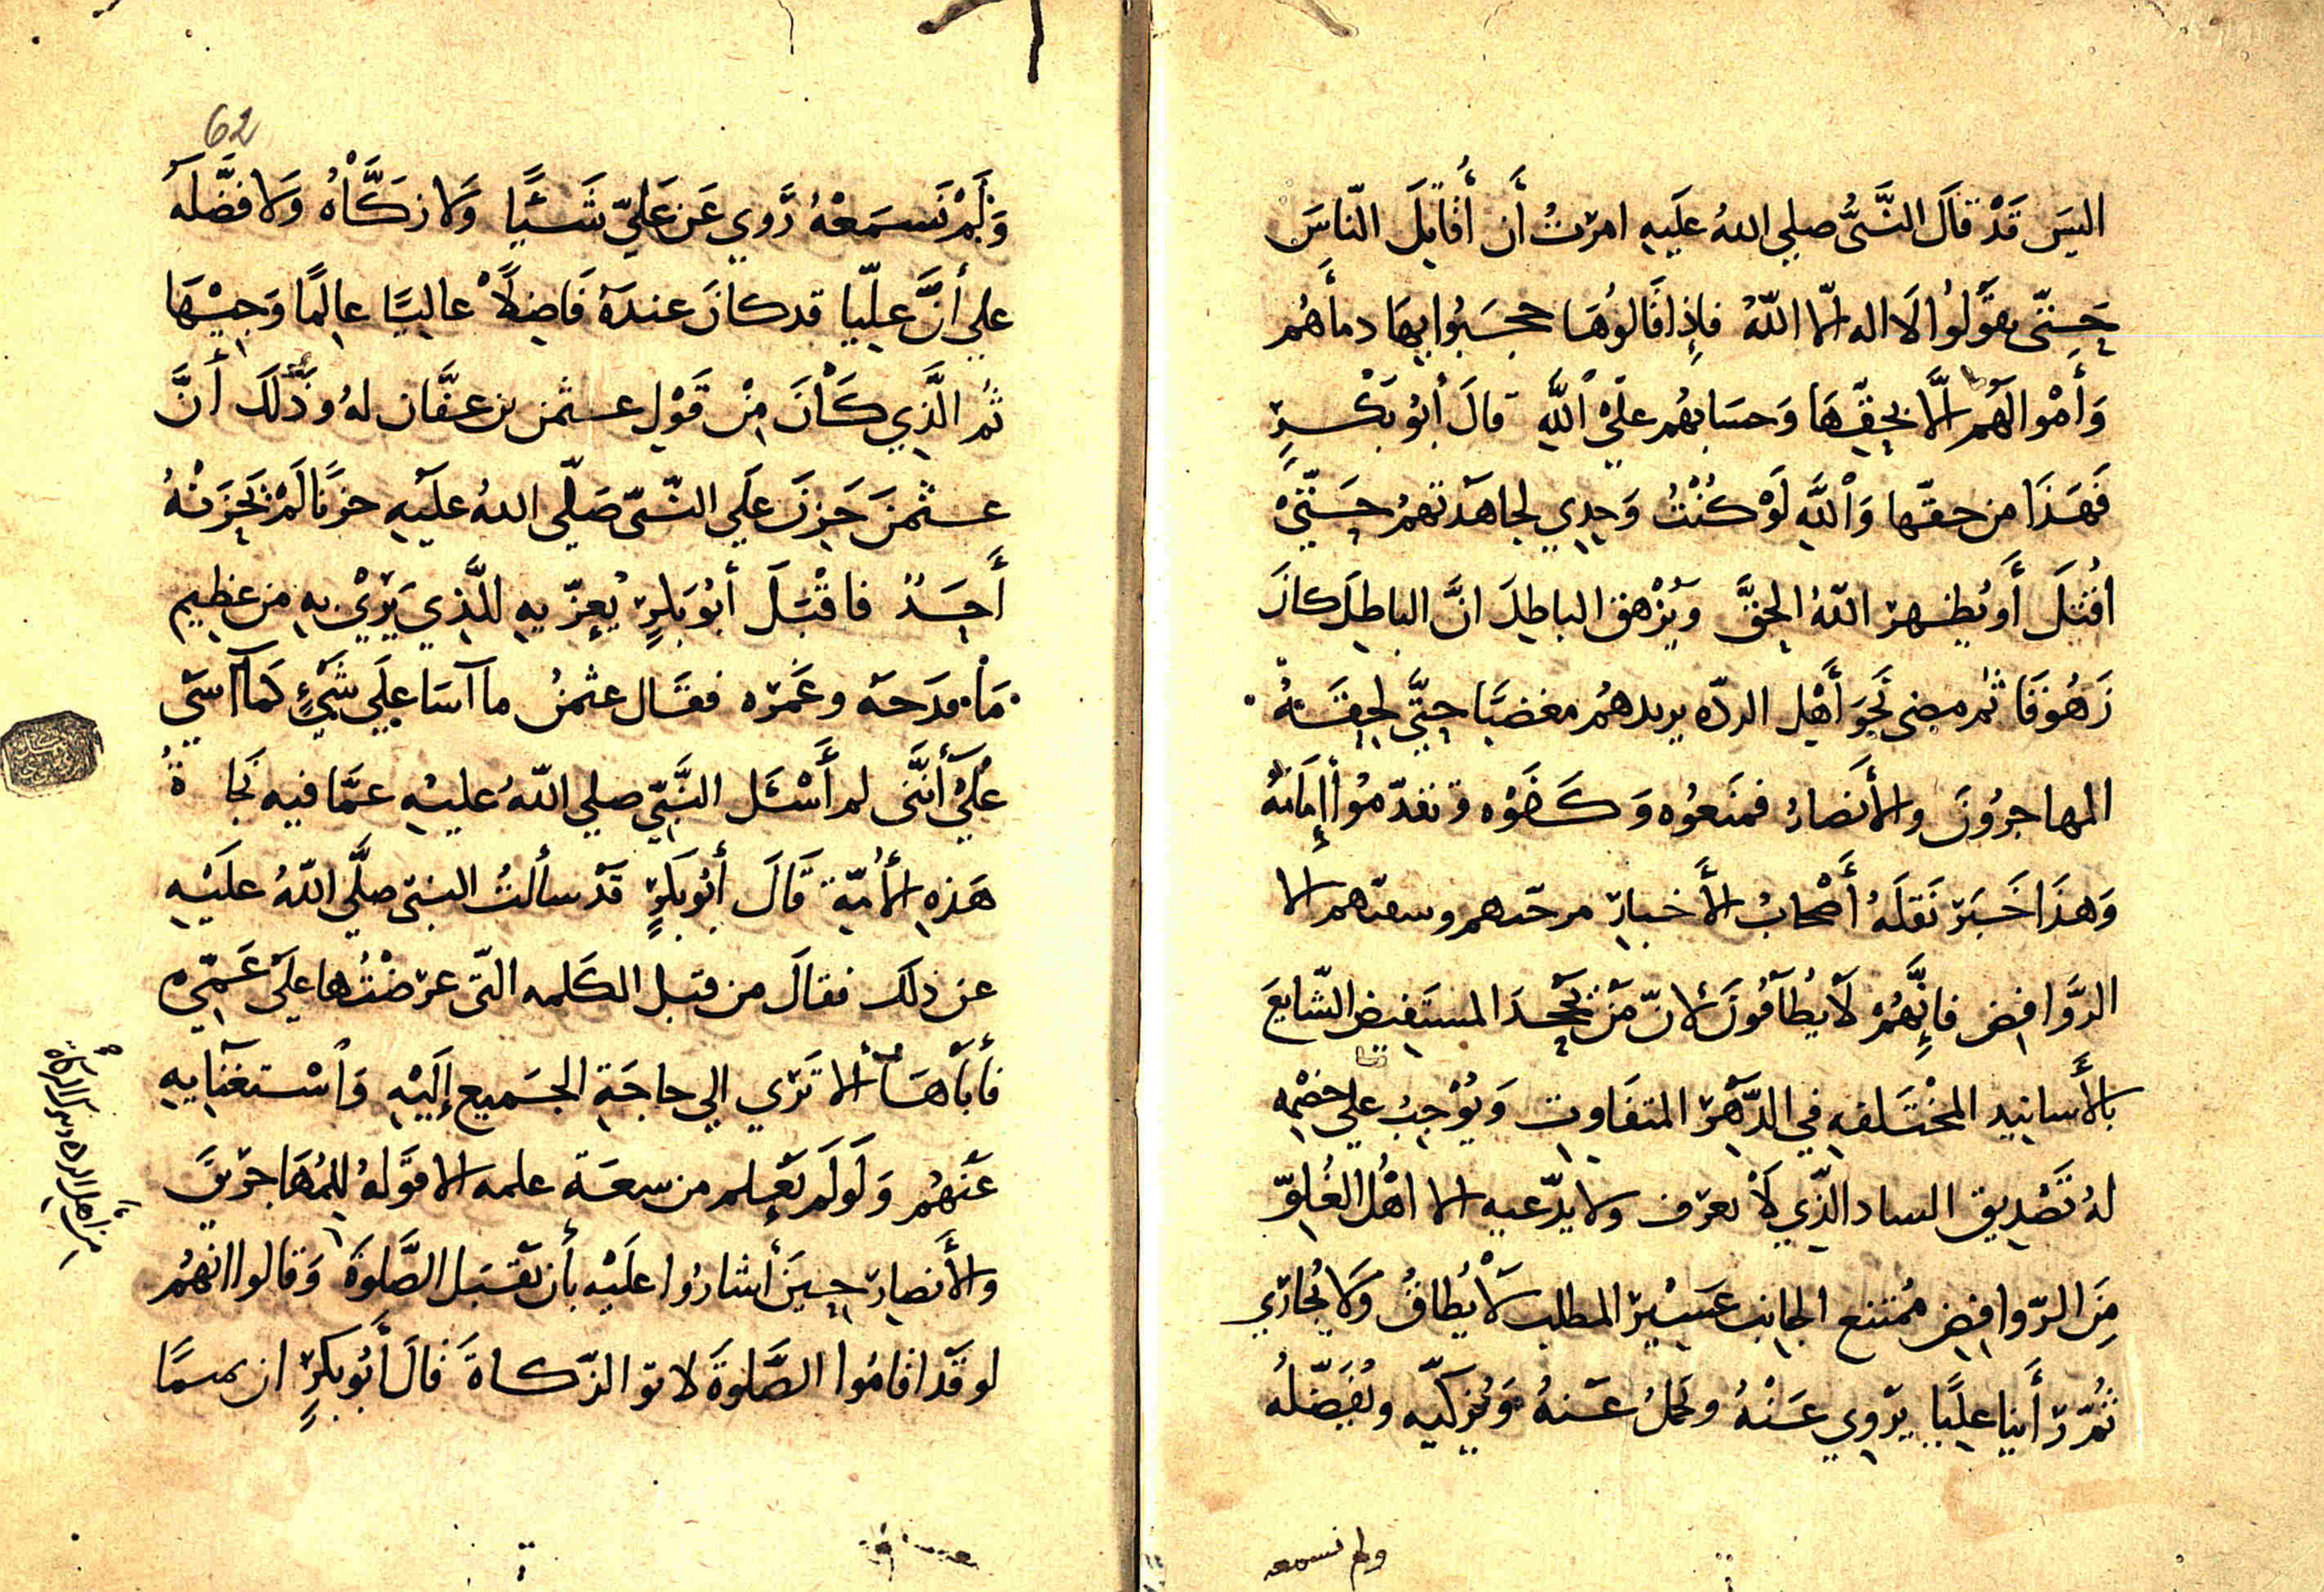 اليسَ قَدْ قَالَ النَّبيُّ صلي اللهُ علَيهِ امرْتُ أَن أُقَاتِلَ النّاسَ
حَتّى يقَولُوا لَا اله الّا اللّهُ فإِذا قَالوُهَا حسَبُوا بهَا دمأَهُم
وَأَمْوالَهُم الَّا بحقّهَا وَحسَابهُم علَي اللَّهِ قالَ أَبُو بَكْرٍ
فَهَذَا من حقّها وَاللَّهِ لَوْ كُنْتُ وَحدِي لجاهَدتهُم حَتّيْ
اقُتَلَ أَو يُظهرْ اللّهُ الحَقَّ وَيُزْهقَ الباطِلَ انَّ الباطِلَ كانَ
زَهُوقَا ثُم مضى نَحَوَ أَهْلِ الردّه يريدهُم مغضبًا حتَّي لحِقَتهُ
المهاجرُونَ والأَنصارُ فمنَعوُه وَكَفَوْه وتقدّمُوا أَمَامَهُ
وَهذَا خَبَرْ نَقلَهُ أَصْحَابُ الأَخبارِ مرحّدهم وسعتهم الا
الرَّوافض فإِنَّهُمْ لَا يُطَاقُونَ لانّ مَنْ يَجْحدَ المستَفيضَ الشّايعَ
بالأَسانيد المخْتَلفهِ في الدّهَرْ المتفَاوِتِ وَيُوْجبُ علي خصْمِه
لهُ تَصْدِيق الساد الّذِي لَا يعرْف ولا يدّعيهِ الا اهْلُ الغُلوّ
مِنَ الرّوافِضِ مُمتنع الجانِب عسِيْرْ المطلب لاَ يُطاقُ وَلَا يُجَارَي
ثُمّ رَأَينا عليًا يرْوِي عَنْهُ ويحملُ عَنهُ وَيُزكيّه ويُفَضّلهُ
ولم نسمعه
62
وَلَمْ نَسمَعْهُ رَوي عَن عَليّ شَيئًا وَلا زَكَّاهُ وَلا فضَّلَه
علي أَنَّ عليّا قد كانَ عندَهُ فَاضِلًا عاليًا عالِمًا وَجيْهَا
ثُم الَّذِي كَانَ مِنْ قَوْلِ عثمن بن عفَّان لهُ وذَلَكَ أَنَّ
عثمنَ حَزِنَ علَي النّبيّ صَلّي اللهُ علَيهِ حزنًا لَمْ يَحْزَنْهُ
أَحَدٌ فاقْبَلَ أَبُو بَكرٍ يُعزّيهِ للَّذِي يَرَيْ بهِ من عظيمِ
مَا مدَحَهَ وغَمرْه فقَال عثمنُ ما آسَا علَي شَيْءٍ كَمَا آسَى
علَيْ أَنَّني لم أَسْئَل النَّبيّ صلي اللّهُ عليْهِ عمَّا فيهِ نَجَاةُ
هَذهِ الأُمّةِ قَالَ أَبُو بكَرٍ قَدْ سألتُ النبيّ صلّي اللّهُ علَيْهِ
عن ذلَكَ فقالَ من قبل الكَلمه الّتي عرَضْتُها علَي عَمّي
فأَبَاهَا أَلا تَرَي الي حاجَةِ الجمَيع إِلَيْهِ وَاسْتغنَايهِ
عَنهُم وَلَولَم يَعْلم من سعَة علمه الا قوَّلهُ للمُهَاجرِينَ
والأَنصارِ حينَ أَشارُوا علَيْهِ بأَن يَقْبَل الصَّلوةَ وَقالوا انهُم
لو قَدْ اقامُوا الصَّلوةَ لاتوا الزّكاةَ قالَ أَبُو بكرٍ